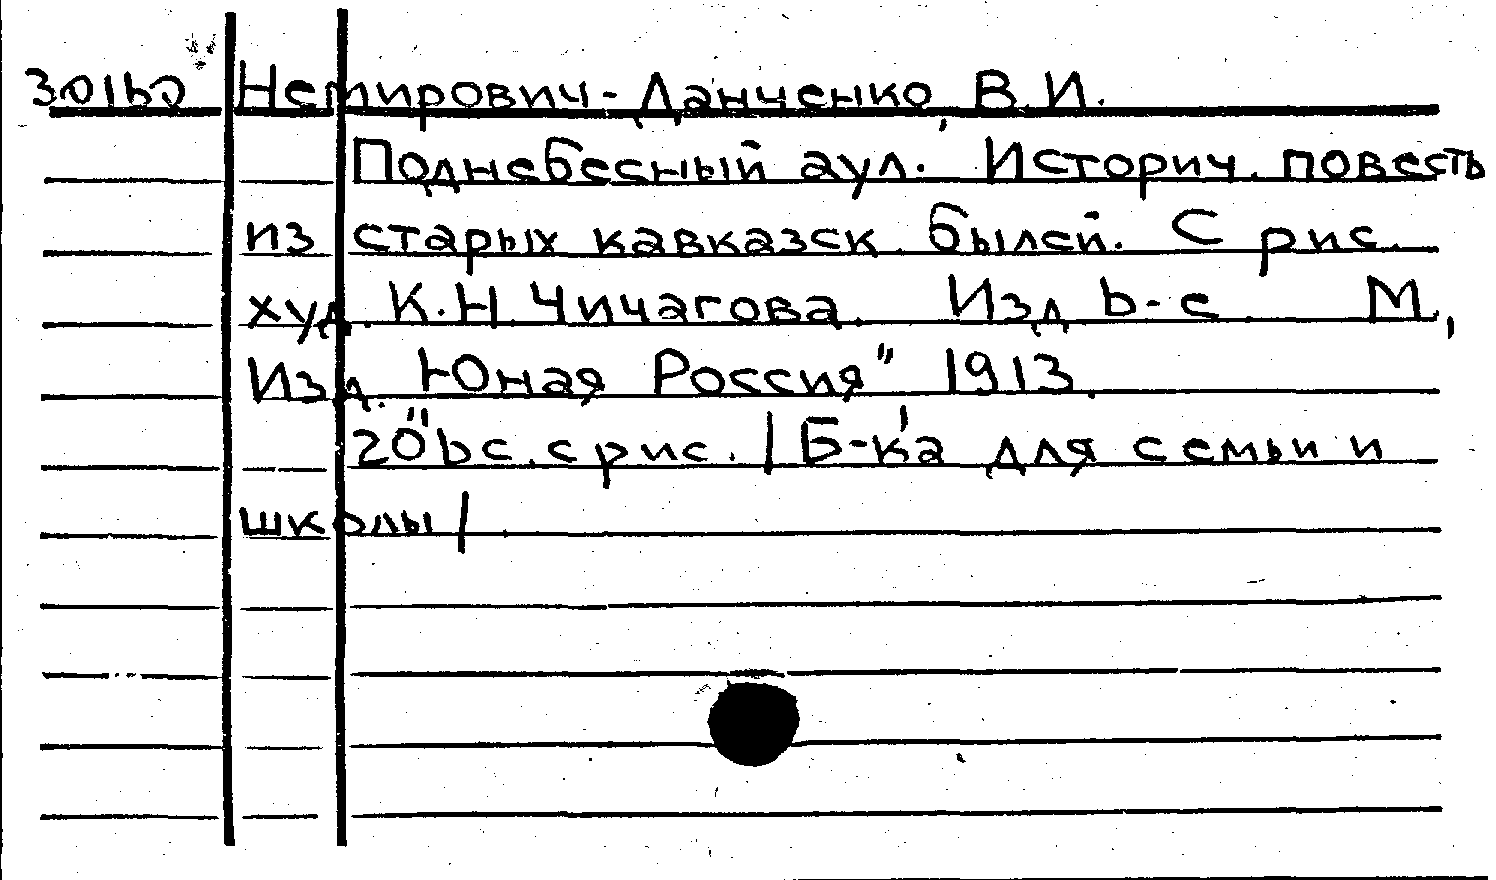 Немирович-Данченко, В.И.
Поднебесный аул. Историч. повесть
из старых кавказск. былей. С рис.
худ. К.Н.Чичагова. Изд. 6-е. М,
Изд. "Юная Россия" 1913.
206 с. с рис. /Б-ка для семьи и
школы/.